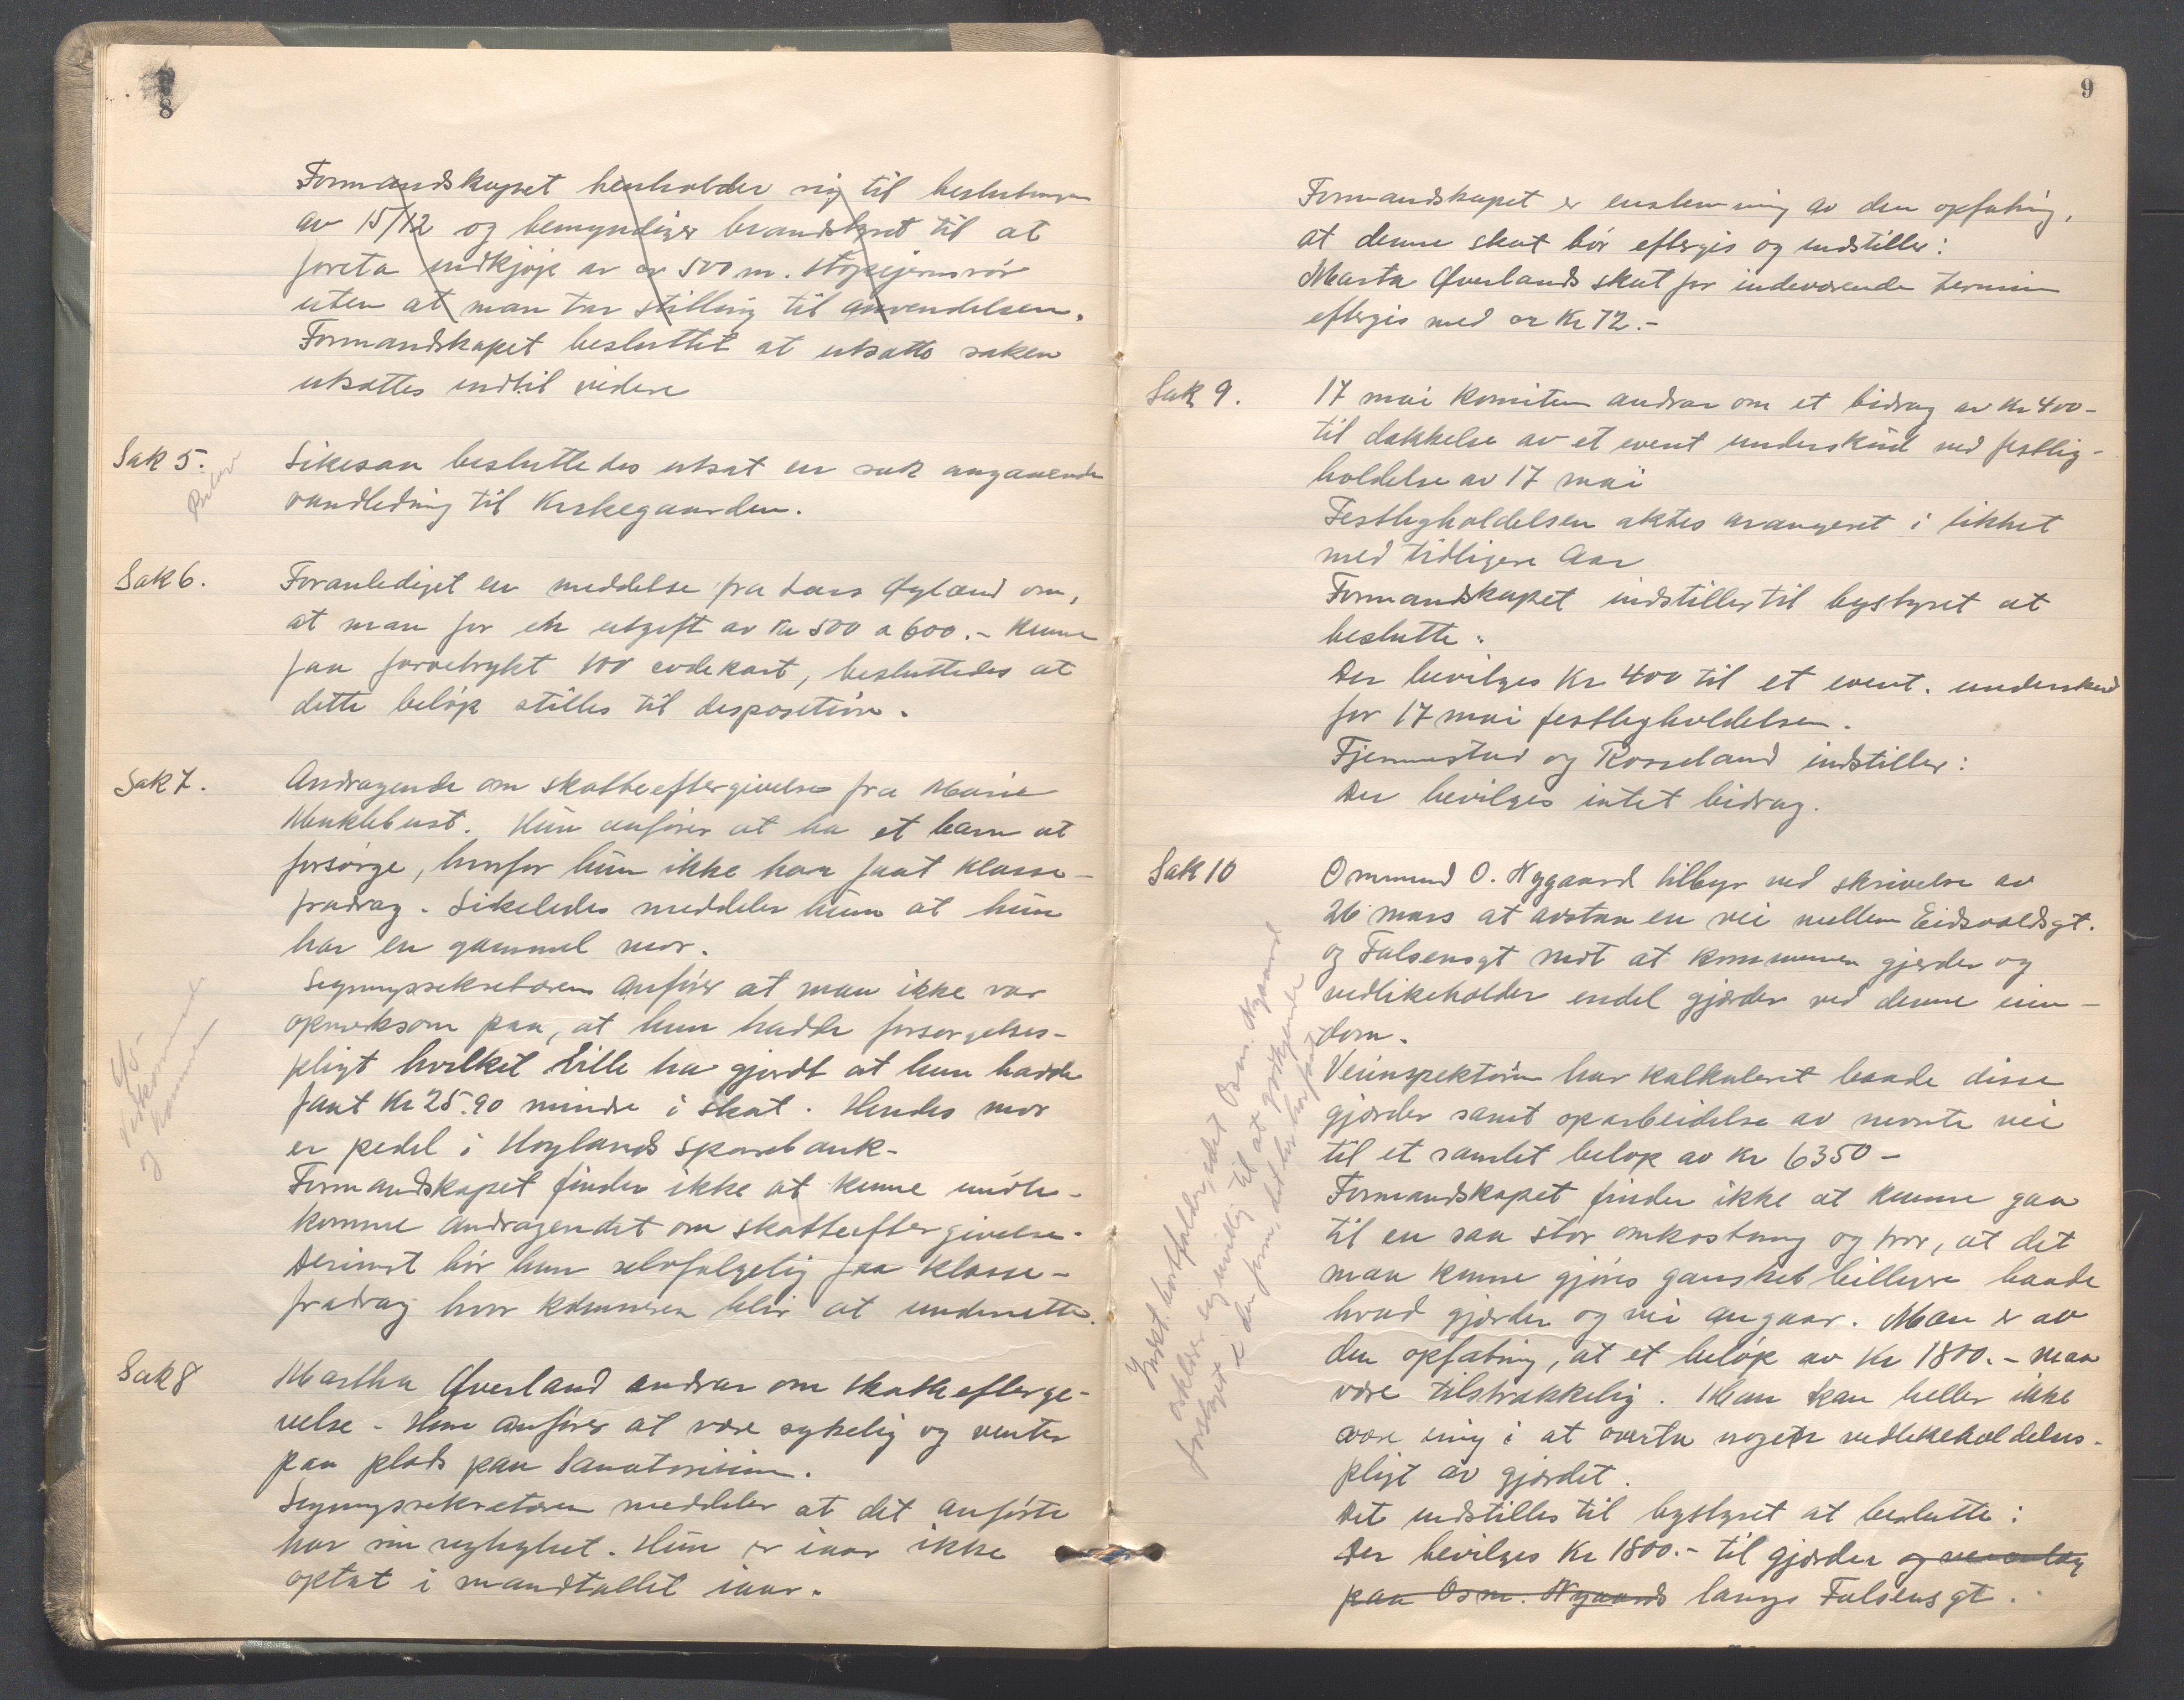 8
Formandskapet henholder sig til beslutningen
av 15/12 og bemyndiger brandstyret til at
foreta indkjøp av ca 500 m. støpejernsrör
uten at man tar stilling til anvendelsen.
Formandskapet besluttet at utsatte saken
utsattes indtil videre
Sak 5.
Likesaa besluttedes utsat en sak angaaende
vandledning til Kirkegaarden.
Sak 6.
Foranlediget en meddelse fra Lars Øyland om,
at man for en utgift av Kr 500 a 600.- kunne
faa farvetrykt 100 kart, besluttedes at
dette beløp stilles til desposition.
Sak 7.
Andragende om skatteeftergivelse fra Marie
Hun anförer at ha et barn at
forsörge, hvorfor hun ikke har faat klasse-
fradrag. Likeledes meddeler hun at hun
har en gammel mor.
Ligningssekretæren anförer at man ikke var
opmerksom paa, at hun hadde forsørgelses-
pligt hvilket ville ha gjordt at hun hadde
faat Kr 25.90 mindre i skat. Hendes mor
er pedel i Høylands Sparebank.
Formandskapet finder ikke at kunne imöte-
komme andragendet om skatteeftergivelse.
Derimot bör hun selvfølgelig faa klasse-
fradrag hvor kæmneren blir at underrette.
Sak 8
Martha Øverland andrar om skatteefterge-
velse. Hun anförer at være sykelig og venter
paa plads paa Sanatorium.
Ligningssekretæren meddeler at det anførte
har sin rigtighet. Hun er iaar ikke
optat i mandtallet iaar.
9
Formandskapet er enstemmig av den opfatnig,
at denne skat bör eftergis og indstiller:
Marta Øverlands skat for indeværende termin
eftergis med Kr 72.-
Sak 9.
17 mai komiteen andrar om et bidrag av Kr 400-
til dækkelse av et event underskud ved festlig-
holdelse av 17 mai
Festligholdelsen aktes arangeret i likhet
med tidligere Aar
Formandskapet indstiller til bystyret at
beslutte:
Der bevilges Kr 400 til et event. underskud
for 17 mai festligholdelsen.
Fjermestad og Rosseland indstiller:
Der bevilges intet bidrag.
Sak 10
Ommund O. Nygaard tilbyr ved skrivelse av
26 mars at avstaa en vei mellem Eidsvoldsgt.
og Falsensgt mot at kommunen gjerder og
vedlikeholder endel gjerder ved denne eien-
dom.
Veiinspektören har kalkuleret baade disse
gjærder samt oparbeidelse av nevnte vei
til et samlet beløp av Kr 6350-
Formandskapet finder ikke at kunne gaa
til en saa stor omkostning og tror, at det
maa kunne gjöres ganske billigere baade
hvad gjærder og vei angaar. Man er av
den opfatnig, at et beløp av Kr 1800.- maa
være tilstrækkelig. Man kan heller ikke
være enig i at overta noget vedlikeholdelses-
pligt av gjærdet.
Det indstilles til bystyret at beslutte:
Der bevilges Kr 1800.- til gjærder og veianlæg
paa Osm. Nygaards langs Falsensgt.
Indst. bortfalder, idet Osm. Nygaard
erklærer sig uvillig til at godkjende
forslaget i den form, det her har faat